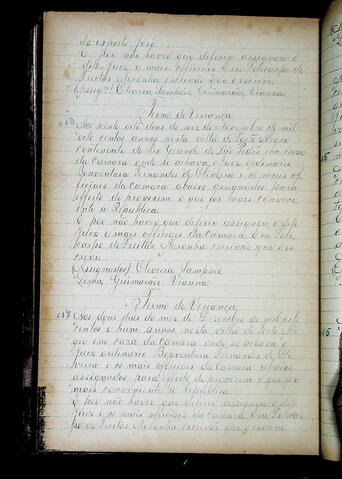 do exposto Jose
E por não haver que deferir assignou o
dito Juiz e mais officiaes E eu Policarpo de
Freitas Noronha escrivão que o escrevi
(Assig.os) Oliveira, Sampaio, Guimarães, Vianna.
Termo de Vriança
Aos vinte oito dias do mez de Novembro de mil
oito centos annos nesta villa de Porto Alegre
continente do Rio Grande de São Pedro em caza
da Camara onde se achava o Juiz ordinario
Boaventura Fernandes de Oliveira e os mais of-
ficiaes da Camara abaixo assignados para
effeito de proverem o que for mais conveni
ente a Republica.
E por não haver que deferir assignou o dito
Juiz e mais officiaes da Camara. E eu Poli-
carpo de Freitas Noronha escrivão que o es
crevi
(Assignados) Oliveira Sampaio
Lima, Guimarães Vianna
Termo de Vriança
Aos dous dias do mez de Dezembro de mil oito
centos e hum annos nesta villa de Porto Ale
gre em caza da Camara onde se achava o
Juiz ordinario Boaventura Fernandes de Oli
veira e os mais officiaes da Camara abaixo
assignados para effeito de proverem o que for
mais conveniente a Republica.
E por não haver que deferir assignou o di
Juiz e os mais officiaes da Camara. E eu Policar
po de Freitas Noronha escrivão que o escrevi
15